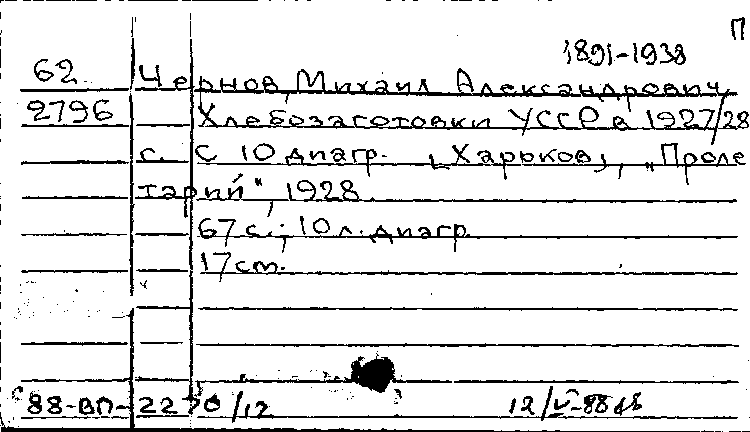 П
1891-1938
62 Чернов, Михаил Александрович.
2796 Хлебозаготовки УССР в 1927/28
г. С 10 диагр. [Харьков], „Проле
тарий", 1928.
67 с.; 10 л. диагр.
17 ст.
88-ВП-2270/12 12/V-88